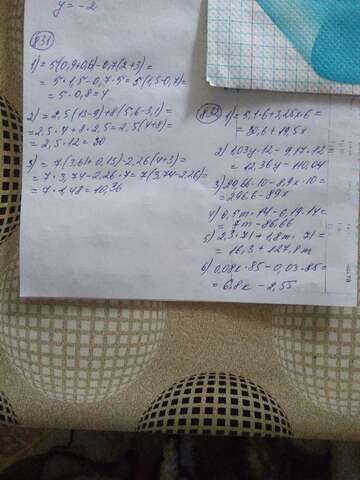 y = -2
831
1) = 5(0,9+0,6)-0,7(2+3)=
= 5·1,5-0,7·5=5(1,5-0,7)=
= 5·0,8=4
2) = 2,5(13-9)+8(5,6-3,1)=
= 2,5·4+8·2,5=2,5(4+8)=
= 2,5·12=30
3) = 7(3,61+0,13)-2,26(4+3)=
= 7·3,74-2,26·7=7(3,74-2,26)=
= 7·1,48=10,36
832
1) = 5,1·6+3,25x·6=
= 30,6+19,5x
2) 1,03y·12-9,17·12=
= 12,36y-110,04
3) 29,66·10-8,9x·10=
= 296,6-89x
4) 0,5m·14-6,19·14=
= 7m-86,66
5) 2,3·71+1,8m·71=
= 16,3+127,8m
6) 0,08x·85-0,03·85=
= 6,8x-2,55